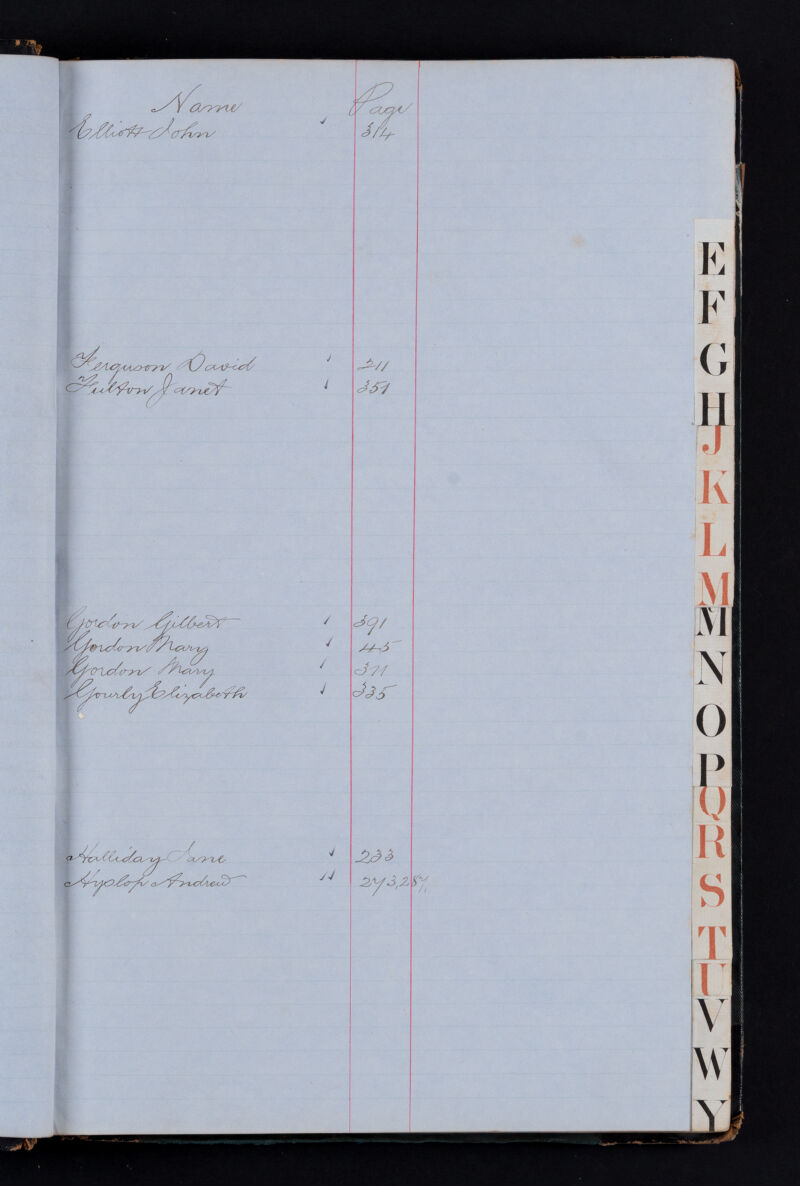 Name Page
Elliott John 314
Ferguson David 211
Fulton Janet 351
Gordon Gilbert 391
Gordon Mary 45
Gordon Mary 311
Gourly Elizabeth 335
Halliday Jane 233
Hyslop Andrew 273,287,
E
F
G
H
J
K
L
M
M
N
O
P
Q
R
S
T
U
V
W
Y